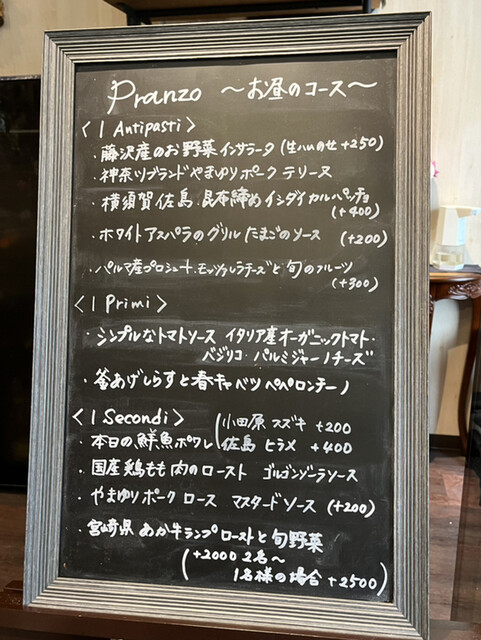 Pranzo ～お昼のコース～
＜I Antipasti＞
・藤沢産のお野菜 インサラータ (生ハムのせ +250)
・神奈川ブランドやまゆりポーク テリーヌ
・横須賀佐島 昆布締めイシダイカルパッチョ
(+400)
・ホワイトアスパラのグリル たまごのソース (+200)
・パルマ産プロシュート、モッツァレラチーズと旬のフルーツ
(+300)
＜I Primi＞
・シンプルなトマトソース イタリア産オーガニックトマト・
バジリコ・パルミジャーノチーズ
・釜あげしらすと春キャベツ ペペロンチーノ
＜I Secondi＞
小田原 スズキ +200
・本日の鮮魚ポワレ 佐島 ヒラメ +400
・国産鶏もも肉のロースト ゴルゴンゾーラソース
・やまゆりポーク ロース マスタードソース (+200)
・宮崎県 あか牛ランプローストと旬野菜
(+2000 2名～
1名様の場合 +2500)